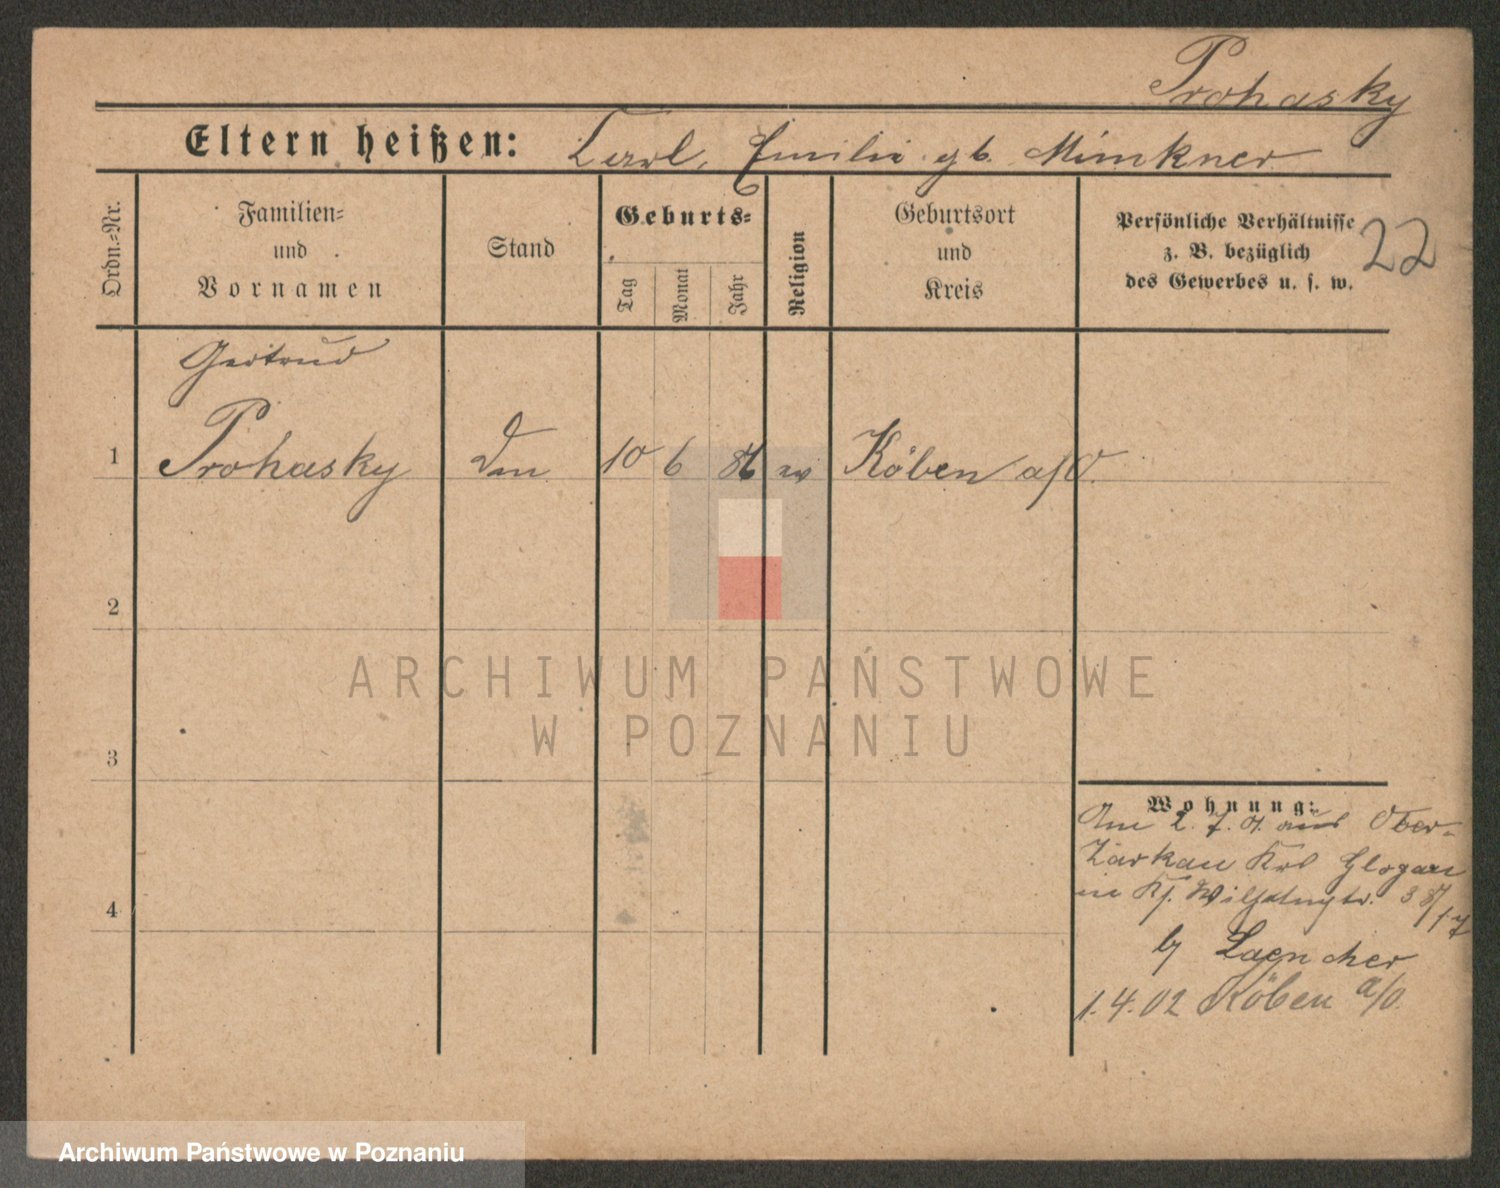 Prohasky
Eltern heißen: Carl, Emilie gb. Minkner
Ordn.-Nr.
Familien-
und
Vornamen
Stand
Geburts-
Tag
Monat
Jahr
Religion
Geburtsort
und
Kreis
Persönliche Verhältnisse
z. B. bezüglich
des Gewerbes u. s. w.
22
Gertrud
1 Prohasky 10 6 86 ev Köben a/O.
2
3
4
Wohnung:
Am 2. 7. 01. aus Ober-
Zarkau Krs Glogau
in Kj. Wilhelmstr. 38/17
by
1.4.02 Köben a/O.
ARCHIWUM PAŃSTWOWE
W POZNANIU
Archiwum Państwowe w Poznaniu